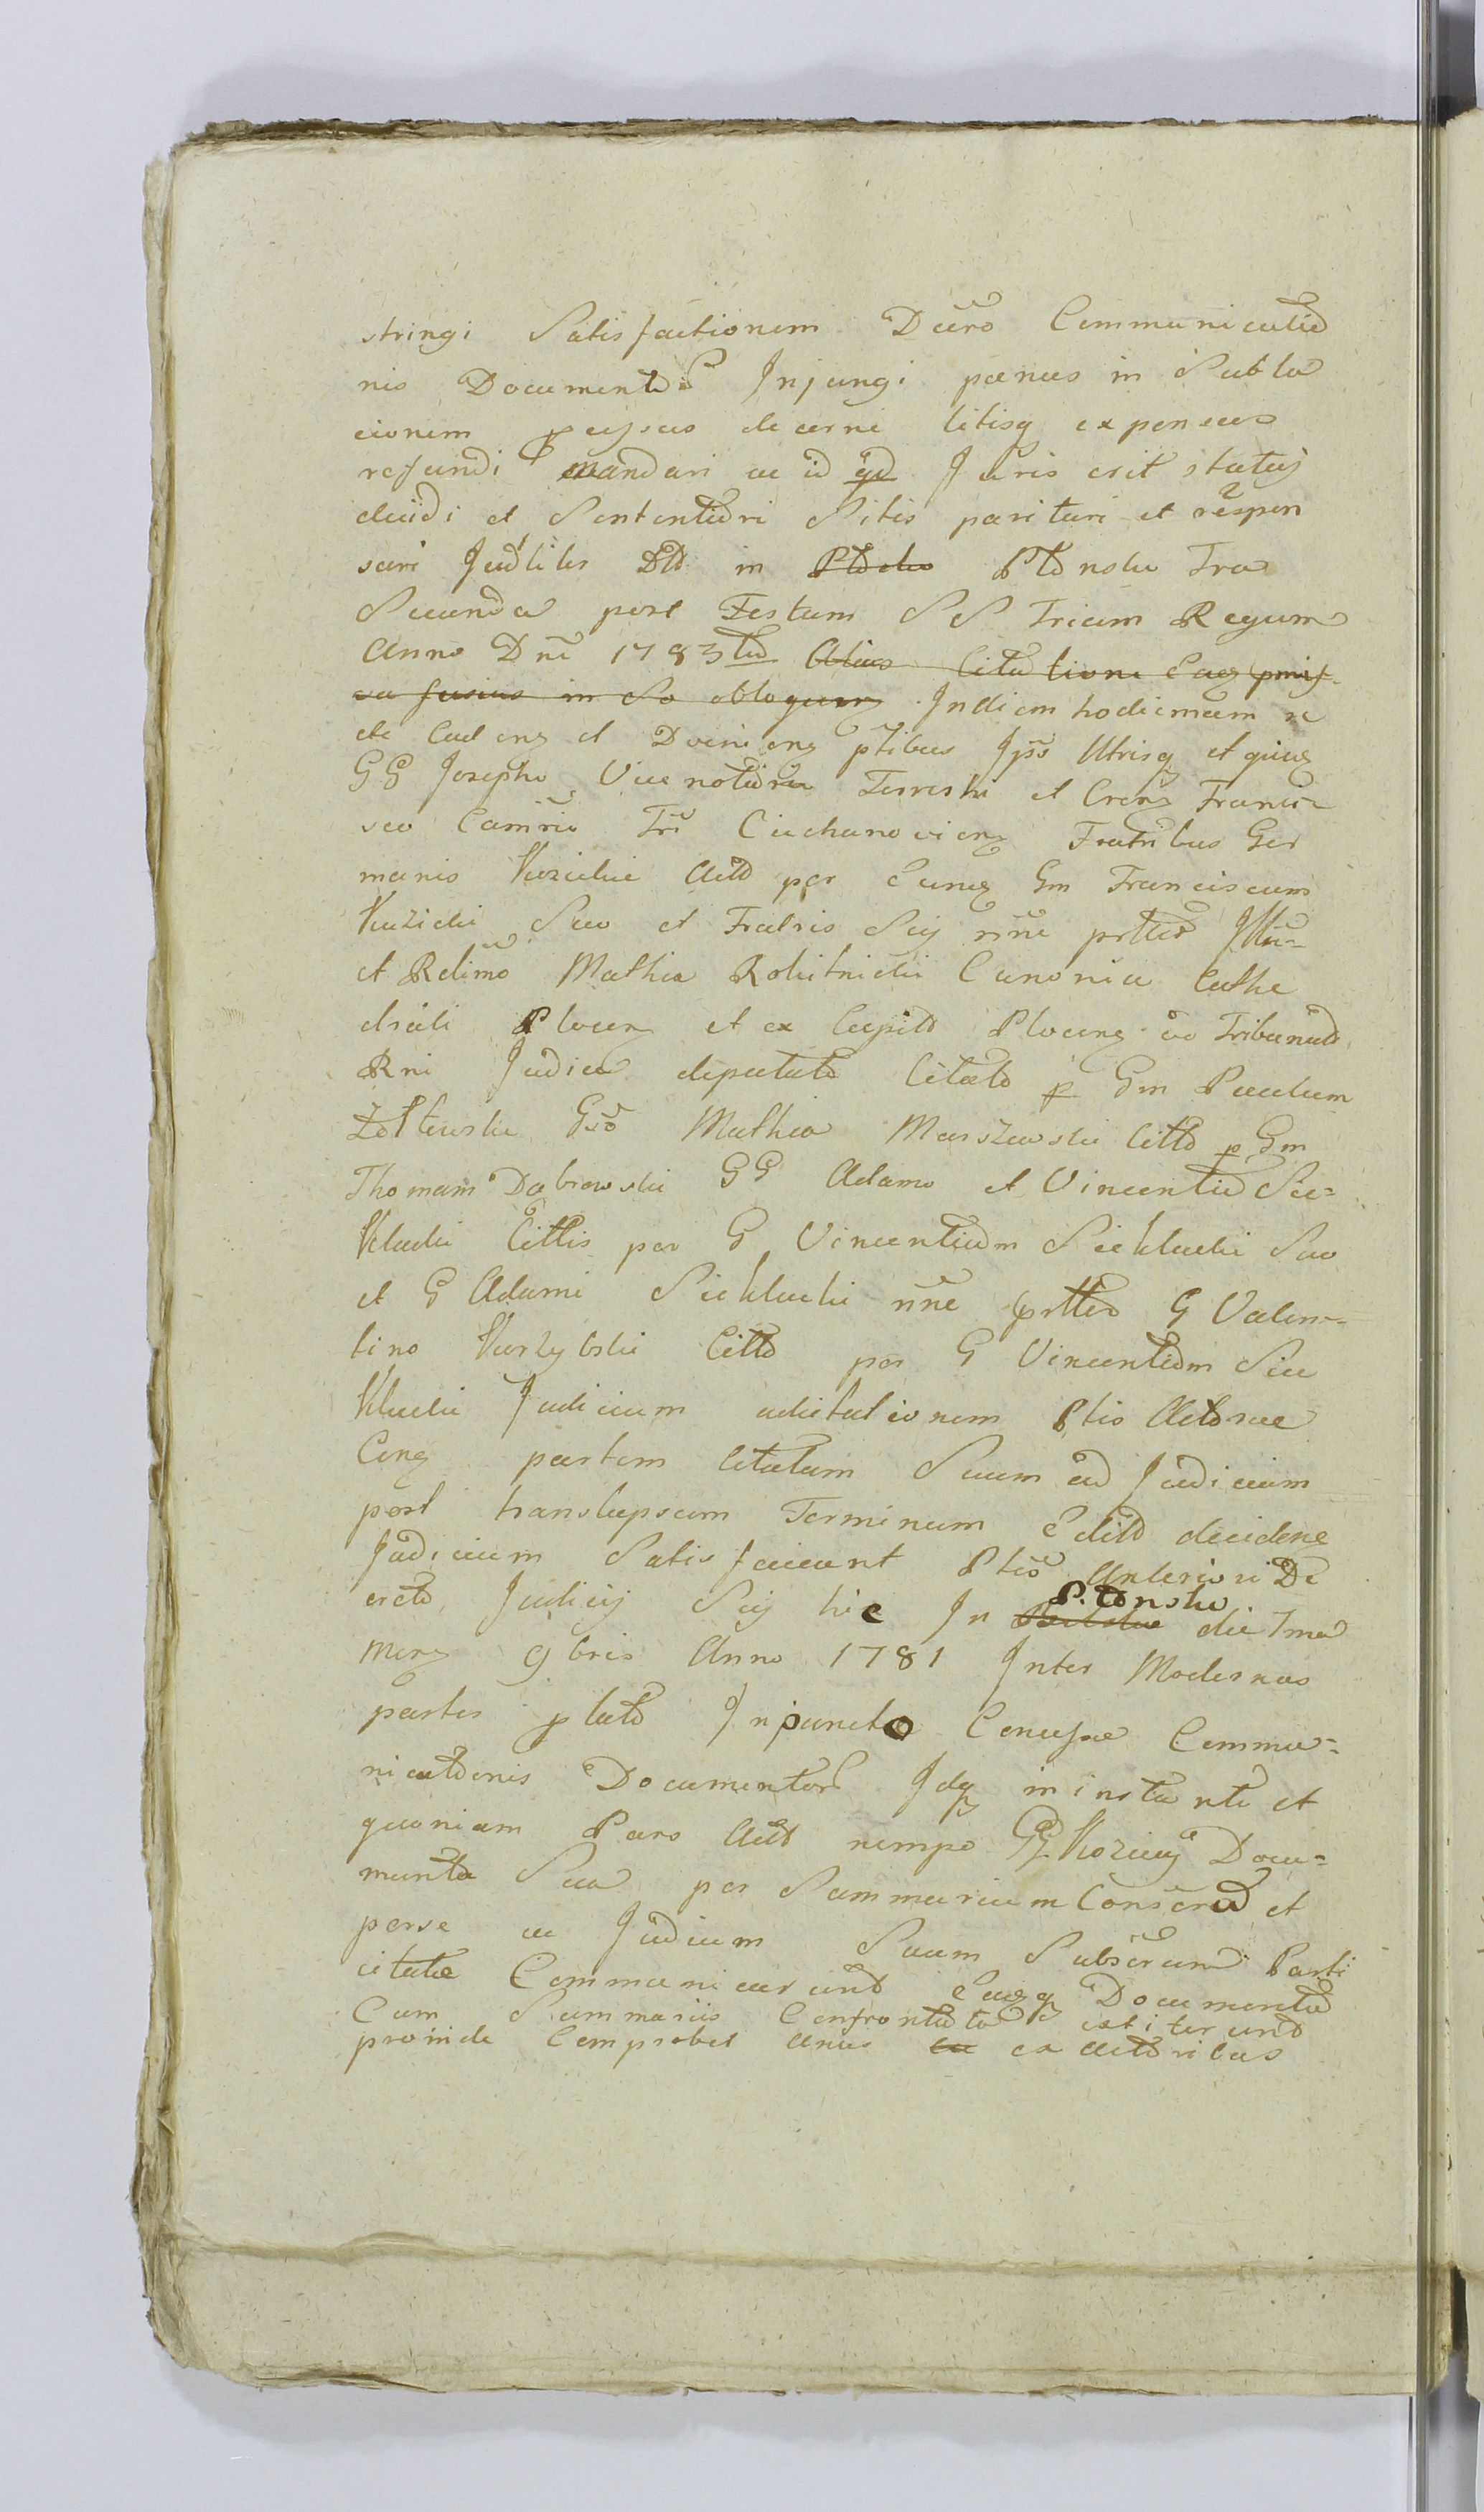 stringi Satisfactionem Dcro Communicatio
nis Documentor Injungi pœnas in Subla
cionem passas decerni litisq expensas
refundi mandari ac id qd Juris erit statuj
decidi et Sententiari Sitis parituri et respon
suri Judiliter Dtt in Pltdcko Pltdnsk Fra
Secunda post Festum SS Trium Regum
Anno Dni 1783tio Alias Citationi Eaq pmis-
sa fusius in So obloquen Indiem hodiernum n
ete Caden et Devenien ptibus Ipso Utrisq et quieq
GG Josepho Vicenotario Terreski et Cren Franci
sco Camrio Tri Ciechanovien Fratribus Ger
manis Kozickie Actto per Eunq Gm Franciscum
Kozicki Suo et Fratris Suj nne prtteo Illri=
et Rdimo Mathia Rokitnicki Canonico Cathe
drali Plocen et ex Capitto Plocens ad Tribunatt
Rni Judice deputato Citato p Gm Paulum
Żółtowski Gso Mathia Marszewski Citto p Gm
Thomam Dąbrowski GG Adamo et Vincentio Sie=
kluckie Cittis per G Vincentium Siekłucki Suo
et G Adami Siekłucki nne prtteo G Valen=
tino Karzybski Citto per G Vincentium Sie
kłucki Judicium adcitationem Ptis Actoreæ
Cenq partem Citatam Suum ad Judicium
post translapsum Terminum Edito decidene
Judicium Satisfaciunt Ptio Anteriori De
creto Judicij Suj hic In P.tonsko die 7ma
Mens 9bris Anno 1781 Inter Modernas
partes plato Inpuncto Causæ Commu=
nicationis Documentor Idq in instanti et
quoniam Pars Actt nempe GG Koziccy Docu=
menta Sua per Summarium Conscrid et
perse ac Judicium Suum Subscrum Parti
citatæ Communicarunt Eaqq Documenta
Cum Summariis Confrontata extiterunt
proinde Comprobet Unus ca ex Actoribus